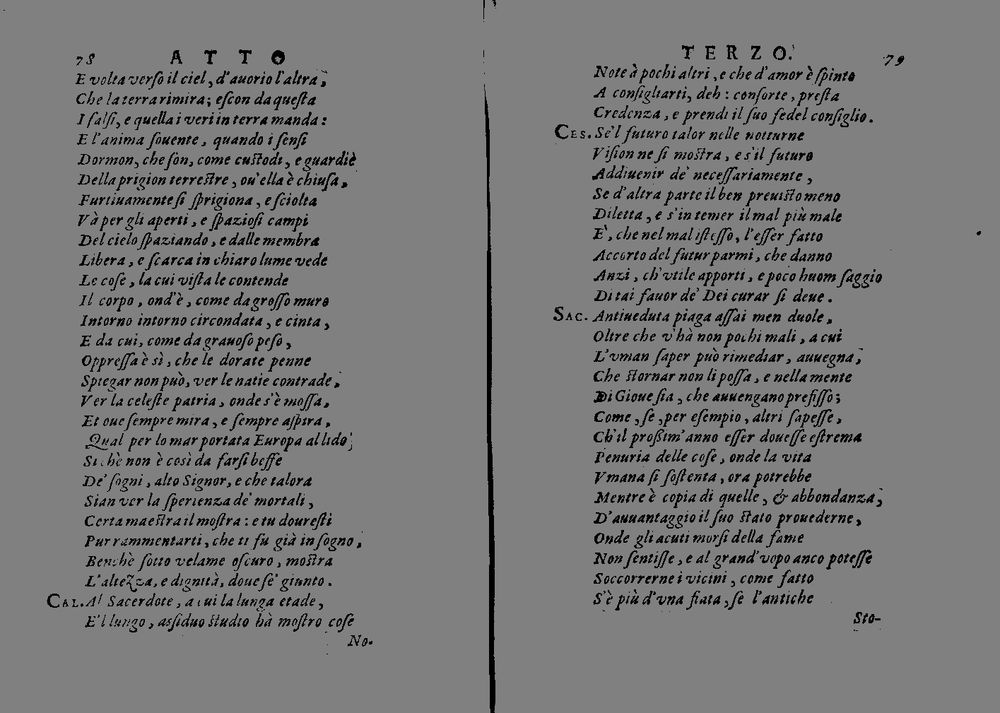 78 ATTO
E volta verſo il ciel, d'auorio l'altra,
Che la terra rimira; eſcon da queſta
I falſi, e quella i veri in terra manda:
E l'anima ſouente, quando i ſenſi
Dormon, che ſon, come cuſtodi, e guardiè
Della prigion terreſtre, ou'ella è chiuſa,
Furtiuamente ſi ſprigiona, e ſciolta
Và per gli aperti, e ſpazioſi campi
Del cielo ſpaziando, e dalle membra
Libera, e ſcarca in chiaro lume vede
Le coſe, la cui viſta le contende
Il corpo, ond'è, come da groſſo muro
Intorno intorno circondata, e cinta,
E da cui, come da grauoſo peſo,
Oppreſſa è sì, che le dorate penne
Spiegar non può, ver le natie contrade,
Ver la celeſte patria, onde s'è moſſa,
Et oue ſempre mira, e ſempre aſpira,
Qual per lo mar portata Europa al lido;
Si chè non è così da farſi beffe
De' ſogni, alto Signor, e che talora
Sian ver la ſperienza de' mortali,
Certa maeſtra il moſtra: e tu doureſti
Pur rammentarti, che ti fu già in ſogno,
Benchè ſotto velame oſcuro, moſtra
L'altezza, e dignità, doue ſe' giunto.
CAL. Al Sacerdote, a cui la lunga etade,
E'l lungo, aſſiduo ſtudio hà moſtro coſe
No-
TERZO. 79
Note à pochi altri, e che d'amor è ſpinto
A conſigliarti, deh: conſorte, preſta
Credenza, e prendi il ſuo fedel conſiglio.
CES. Se'l futuro talor nelle notturne
Viſion ne ſi moſtra, e s'il futuro
Addiuenir de' neceſſariamente,
Se d'altra parte il ben preuiſto meno
Diletta, e s'in temer il mal più male
E', che nel mal iſteſſo, l'eſſer fatto
Accorto del futur parmi, che danno
Anzi, ch'vtile apporti, e poco huom ſaggio
Di tai fauor de' Dei curar ſi deue.
SAC. Antiueduta piaga aſſai men duole,
Oltre che v'hà non pochi mali, a cui
L'vman ſaper può rimediar, auuegna,
Che ſtornar non li poſſa, e nella mente
Di Gioue ſia, che auuengano prefiſſo;
Come, ſe, per eſempio, altri ſapeſſe,
Ch'il proſſim'anno eſſer doueſſe eſtrema
Penuria delle coſe, onde la vita
Vmana ſi ſoſtenta, ora potrebbe
Mentre è copia di quelle, & abbondanza,
D'auuantaggio il ſuo ſtato prouederne,
Onde gli acuti morſi della fame
Non ſentiſſe, e al grand'vopo anco poteſſe
Soccorrerne i vicini, come fatto
S'è più d'vna fiata, ſe l'antiche
Sto-